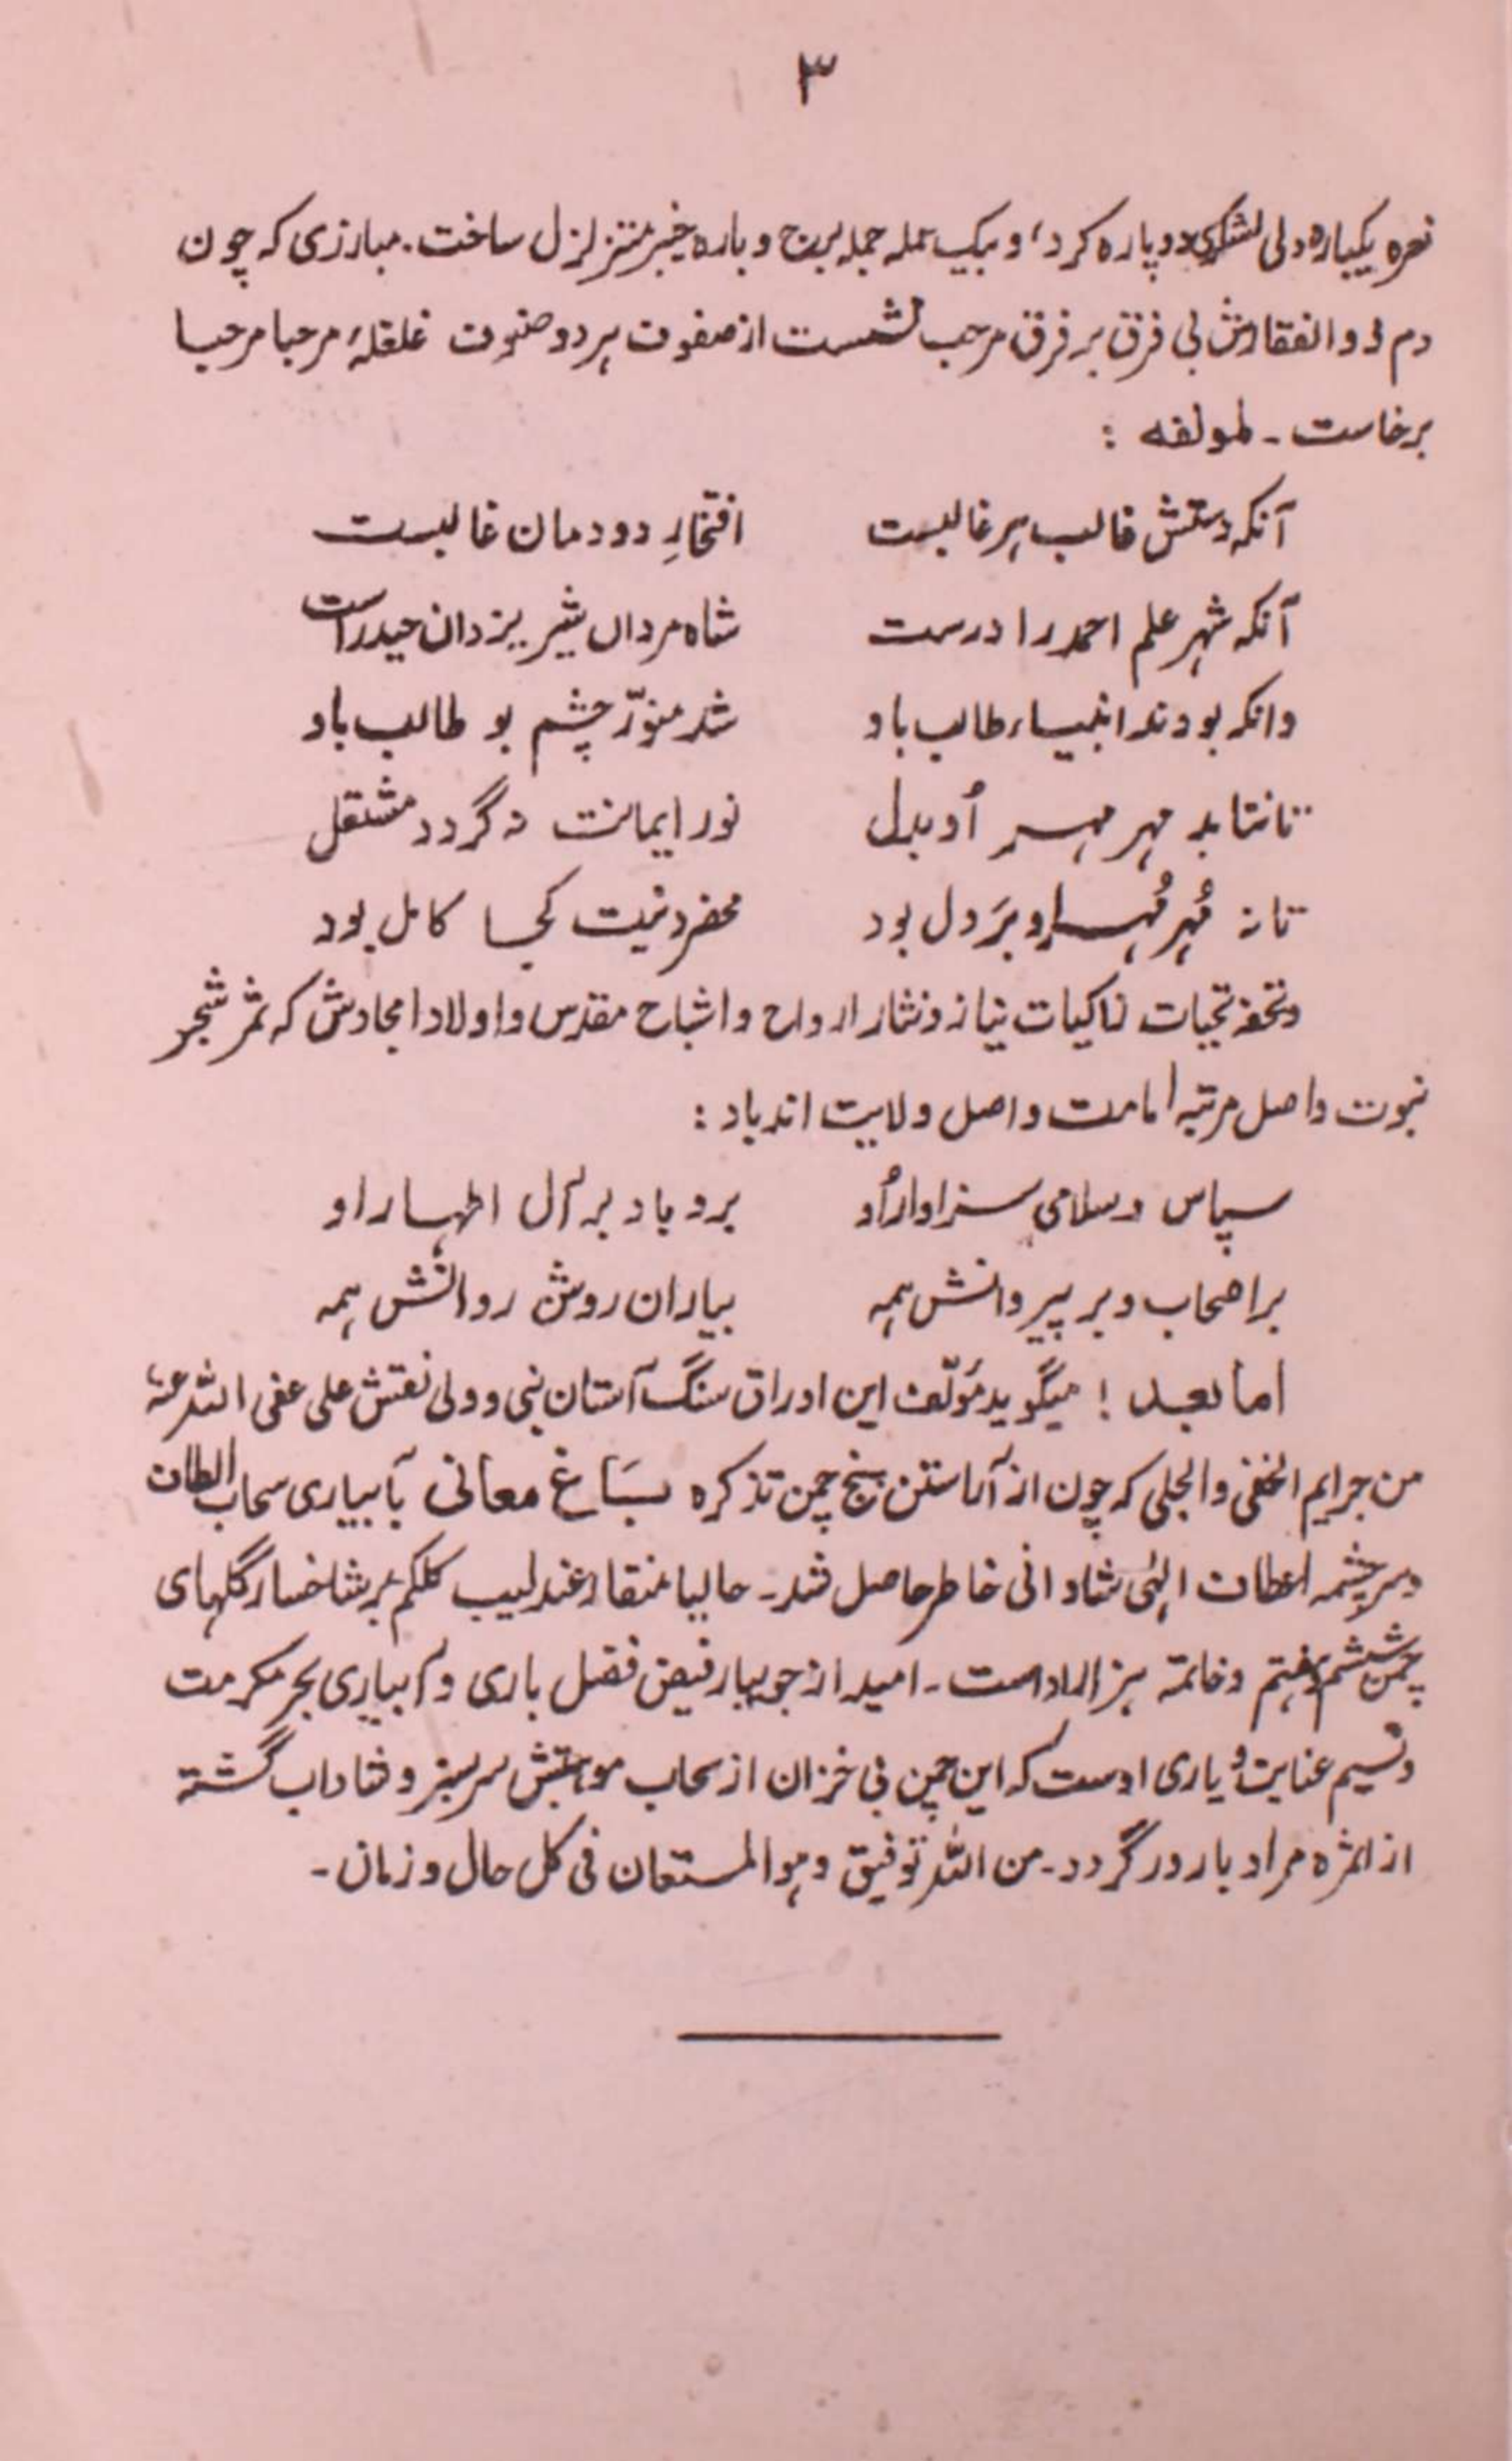 ۳
نعره یکباره دلی لشکری دوپاره کرد، و بیک حمله جمله برج و باره خیبر متزلزل ساخت. مبارزی که چون
دم ذوالفقارش بی فرق بر فرق مرحب نشست از صفوف هر دو صنوف غلغلهٔ مرحبا مرحبا
برخاست ـ لمولفه :
آنکه دستش غالب هر غالبست افتخارِ دودمان غالبست
آنکه شهر علم احمد را درست شاه مرداں شیر یزدان حیدر است
وانکه بودند انبیاء طالب باو شد منوّر چشم بو طالب باو
تا نتابد مهر مهر اُو بدل نور ایمانت نه گردد مشتعل
تا نه مُهر مُهر او بَر دل بود محضر دنیت کجا کامل بود
وتحفه تحیات زاکیات نیاز و نثار ارواح و اشباح مقدس و اولاد امجادش که ثمر شجر
نبوت واصل مرتبه امامت و اصل ولایت اند باد :
سپاس و سلامی سزاوار اُو برو باد بر آل اطهار او
بر اصحاب و بر پیروانش همه بیاران روشن روانش همه
اما بعد ! میگوید مؤلّف این اوراق سگ آستان نبی و ولی نقش علی عفی اللہ عنه
من جرایم الخفی والجلی که چون از آراستن پنج چمن تذکره باغ معانی بآبیاری سحاب الطاف
وسرچشمه اعطاف الٰہی شادانی خاطر حاصل شد ـ حالیا منقار عندلیب کلکم بر شاخسار گلهای
چمن ششم و هفتم و خاتمه هزار ادا ست ـ امید از جویبار فیض فضل باری و آبیاری بحر مکرمت
ونسیم عنایت و یاری اوست که این چمن بی خزان از سحاب موهبتش سرسبز و شاداب گشته
از اثمره مراد بارور گردد ـ من اللہ توفیق و هوالمستعان فی کل حال و زمان ـ